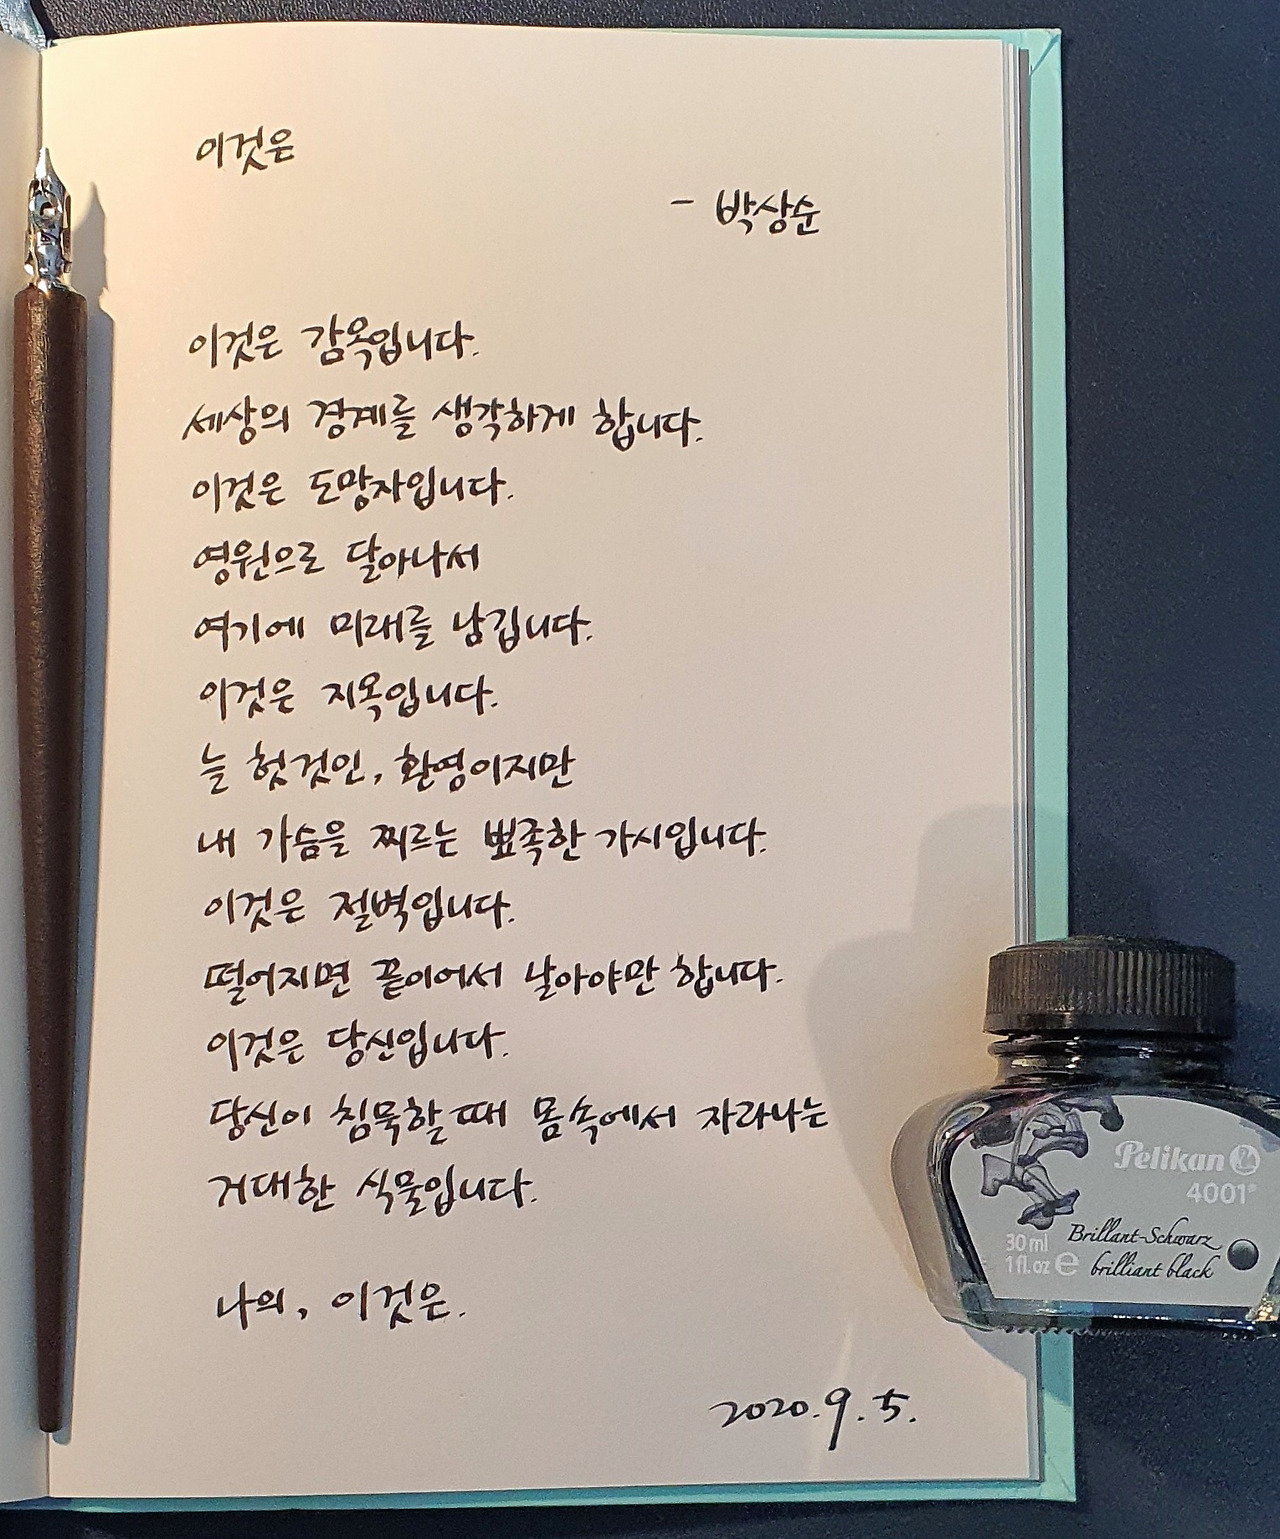 이것은
- 박상순
이것은 감옥입니다.
세상의 경계를 생각하게 합니다.
이것은 도망자입니다.
영원으로 달아나서
여기에 미래를 남깁니다.
이것은 지옥입니다.
늘 헛것인, 환영이지만
내 가슴을 찌르는 뾰족한 가시입니다.
이것은 절벽입니다.
떨어지면 끝이어서 날아야만 합니다.
이것은 당신입니다.
당신이 침묵할 때 몸속에서 자라나는
거대한 식물입니다.
나의, 이것은.
2020. 9. 5.
Pelikan
4001®
30 ml
1 fl. oz e
Brillant-Schwarz
brilliant black